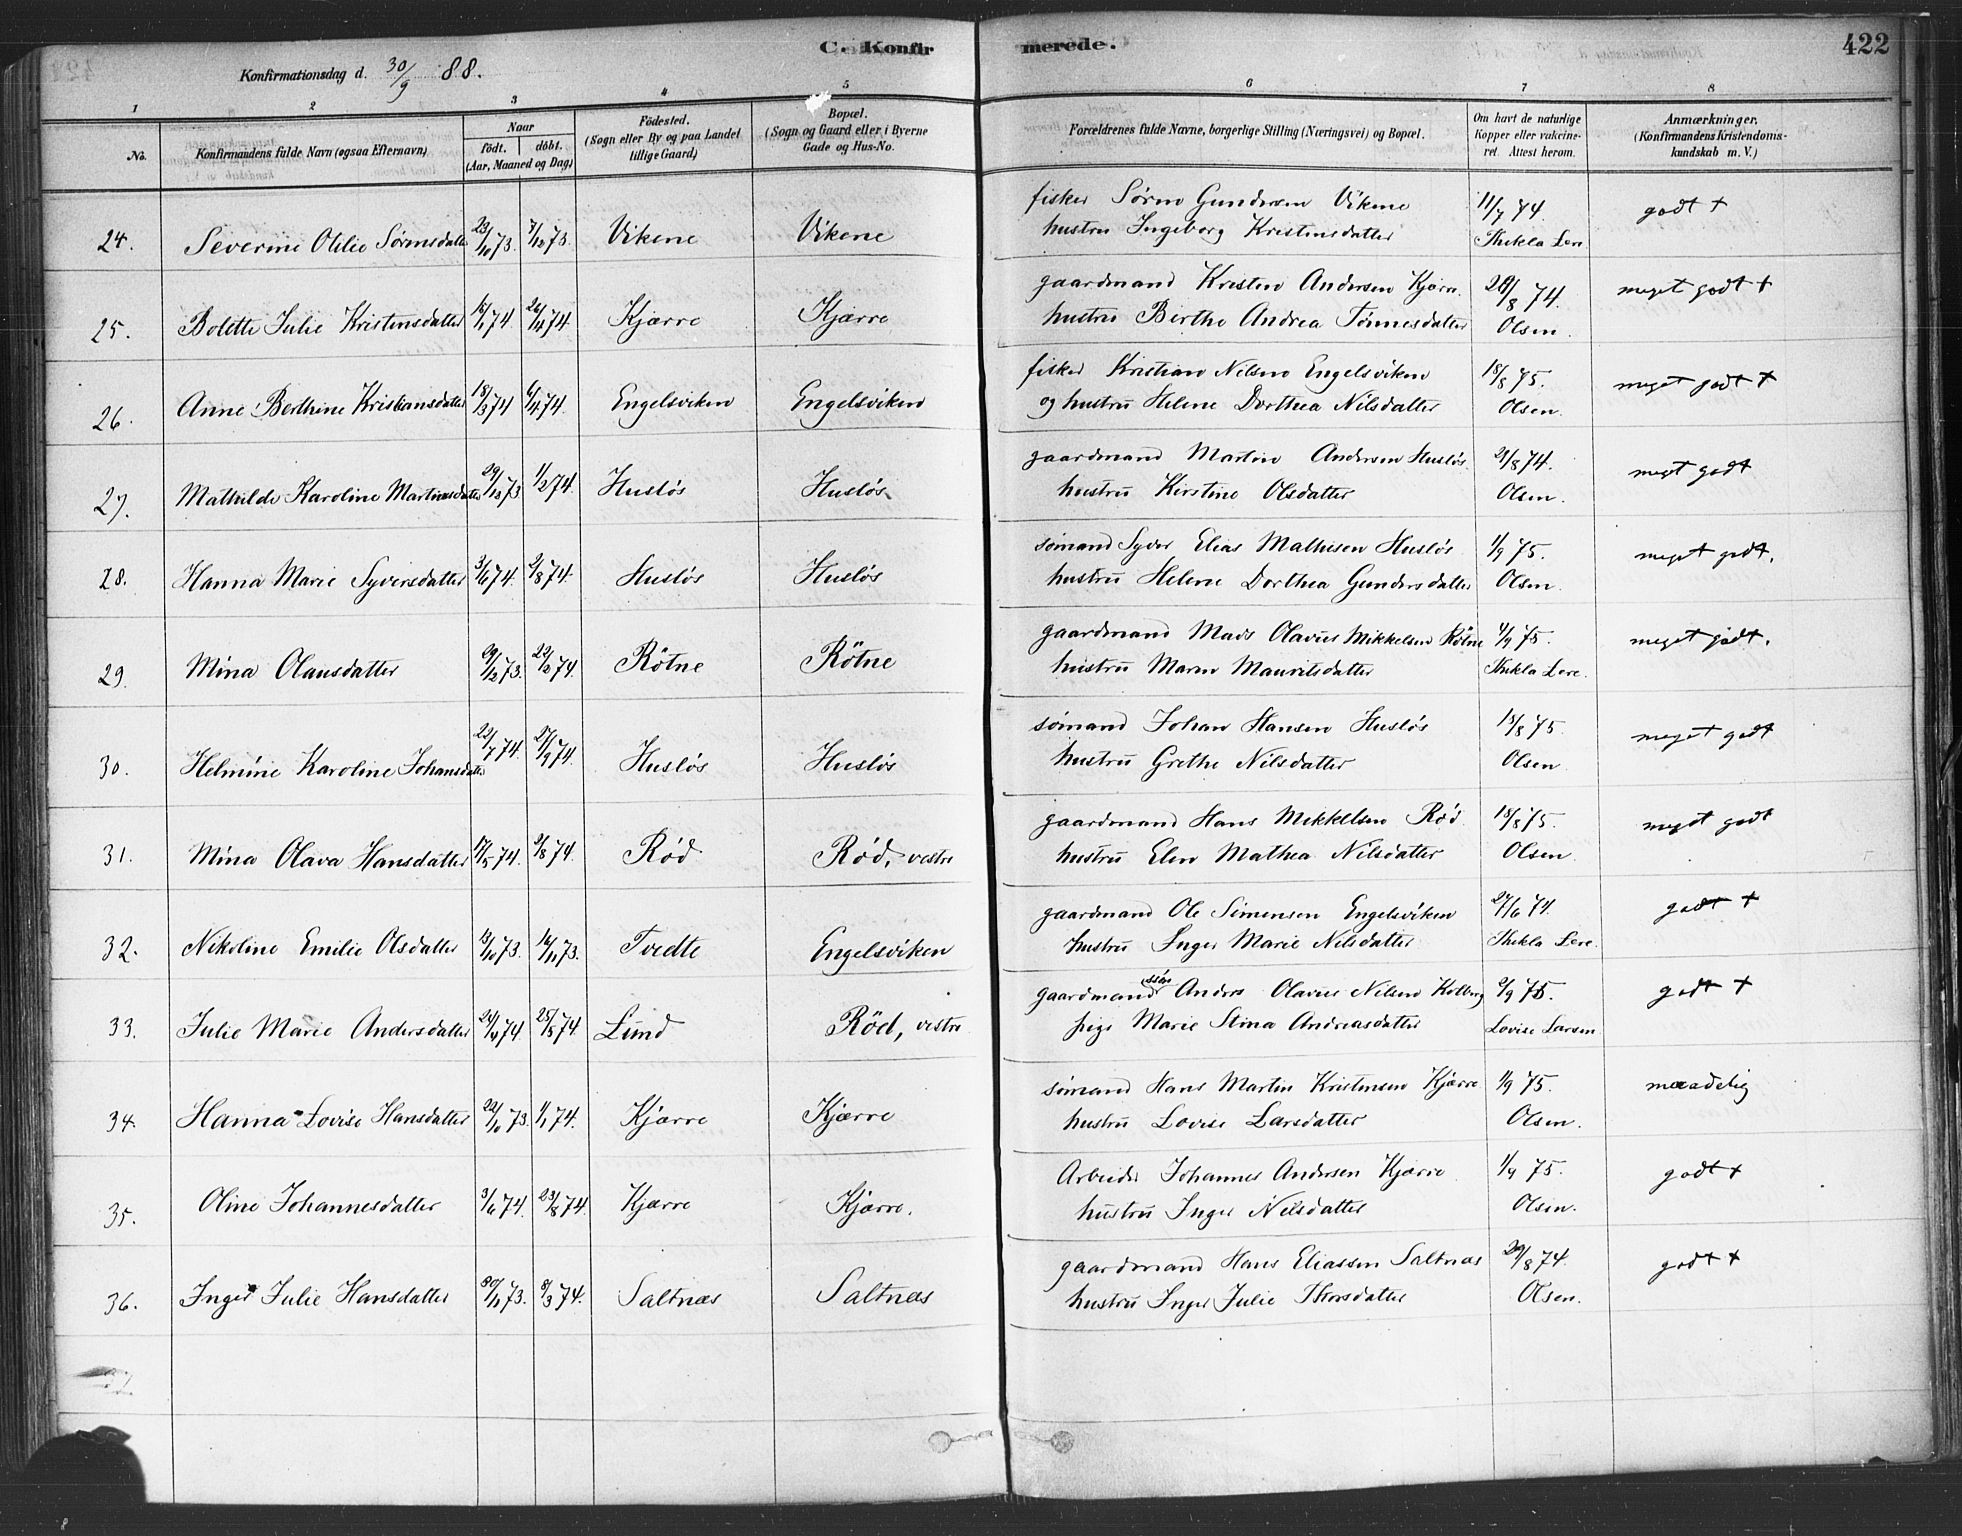 C. Konfirmerede. 422
Konfirmationsdag d. 30/9 88.
1 2 3 4 5 6 7 8
No. Konfirmandens fulde Navn (ogsaa Efternavn) Naar født. døbt. (Aar, Maaned og Dag) Fødested. (Sogn eller By og paa Landet tillige Gaard) Bopæl. (Sogn og Gaard eller i Byerne Gade og Hus-No. Forældrenes fulde Navne, borgerlige Stilling (Næringsvei) og Bopæl. Om havt de naturlige Kopper eller vakcineret. Attest herom. Anmærkninger. (Konfirmandens Kristendomskundskab m. V.)
fisker Søren Gundersen Vikene 11/7 74. godt +
24. Severine Otilie Sørensdatter 23/10 73. 7/12 73. Vikene Vikene hustru Ingeborg Kristensdatter Thekla Lere
gaardmand Kristen Andersen Kjærre 28/8 74. meget godt +
25. Bolette Julie Kristensdatter 16/1 74. 26/4 74. Kjærre Kjærre hustru Berthe Andrea Tønnesdatter Olsen.
fisker Kristian Nilsen Engelsviken 18/8 75. meget godt +
26. Anne Berthine Kristiansdatter 18/3 74 6/4 74. Engelsviken Engelsviken og hustru Helene Dorthea Nilsdatter Olsen.
gaardmand Martin Andersen Husløs 21/8 74. meget godt
27. Mathilde Karoline Martinsdatter 29/12 73. 1/2 74. Husløs Husløs hustru Kirstine Olsdatter Olsen.
sømand Syver Elias Mathisen Husløs 1/9 75. meget godt.
28. Hanna Marie Syversdatter 3/6 74. 2/8 74. Husløs Husløs hustru Helene Dorthea Gundersdatter Olsen.
gaardmand Mads Olavus Mikkelsen Røtne 4/9 75. meget godt.
29. Mina Olausdatter 29/12 73. 22/2 74. Røtne Røtne hustru Maren Mauritsdatter Thekla Lere.
sømand Johan Hansen Husløs 13/8 75. meget godt
30. Helmine Karoline Johansdatter 22/7 74. 27/9 74. Husløs Husløs hustru Grethe Nilsdatter Olsen.
gaardmand Hans Mikkelsen Rød 18/8 75. meget godt
31. Mina Olava Hansdatter 17/5 74. 2/8 74. Rød Rød, vestre hustru Elen Mathea Nilsdatter Olsen.
gaardmand Ole Simensen Engelsviken 27/6 74. godt +
32. Nikoline Emilie Olsdatter 13/10 73. 16/11 73. Tvedte Engelsviken hustru Inger Marie Nilsdatter Thekla Lere.
gaardmandssøn Anders Olavus Nilsen Kolberg 2/9 75. godt +
33. Julie Marie Andersdatter 24/4 74. 25/5 74. Lund Rød, vestre pige Marie Stina Andreasdatter Lovise Larsen
sømand Hans Martin Kristensen Kjærre 1/9 75. maadelig
34. Hanna Lovise Hansdatter 22/10 73. 1/1 74. Kjærre Kjærre hustru Lovise Larsdatter Olsen.
Arbeider Johannes Andersen Kjærre 1/9 75. godt +
35. Oline Johannesdatter 3/6 74. 23/8 74. Kjærre Kjærre. hustru Inger Nilsdatter Olsen.
gaardmand Hans Eliassen Saltnæs 29/8 74. godt +
36. Inger Julie Hansdatter 30/11 73. 8/3 74. Saltnæs Saltnæs hustru Inger Julie Thorsdatter Olsen.